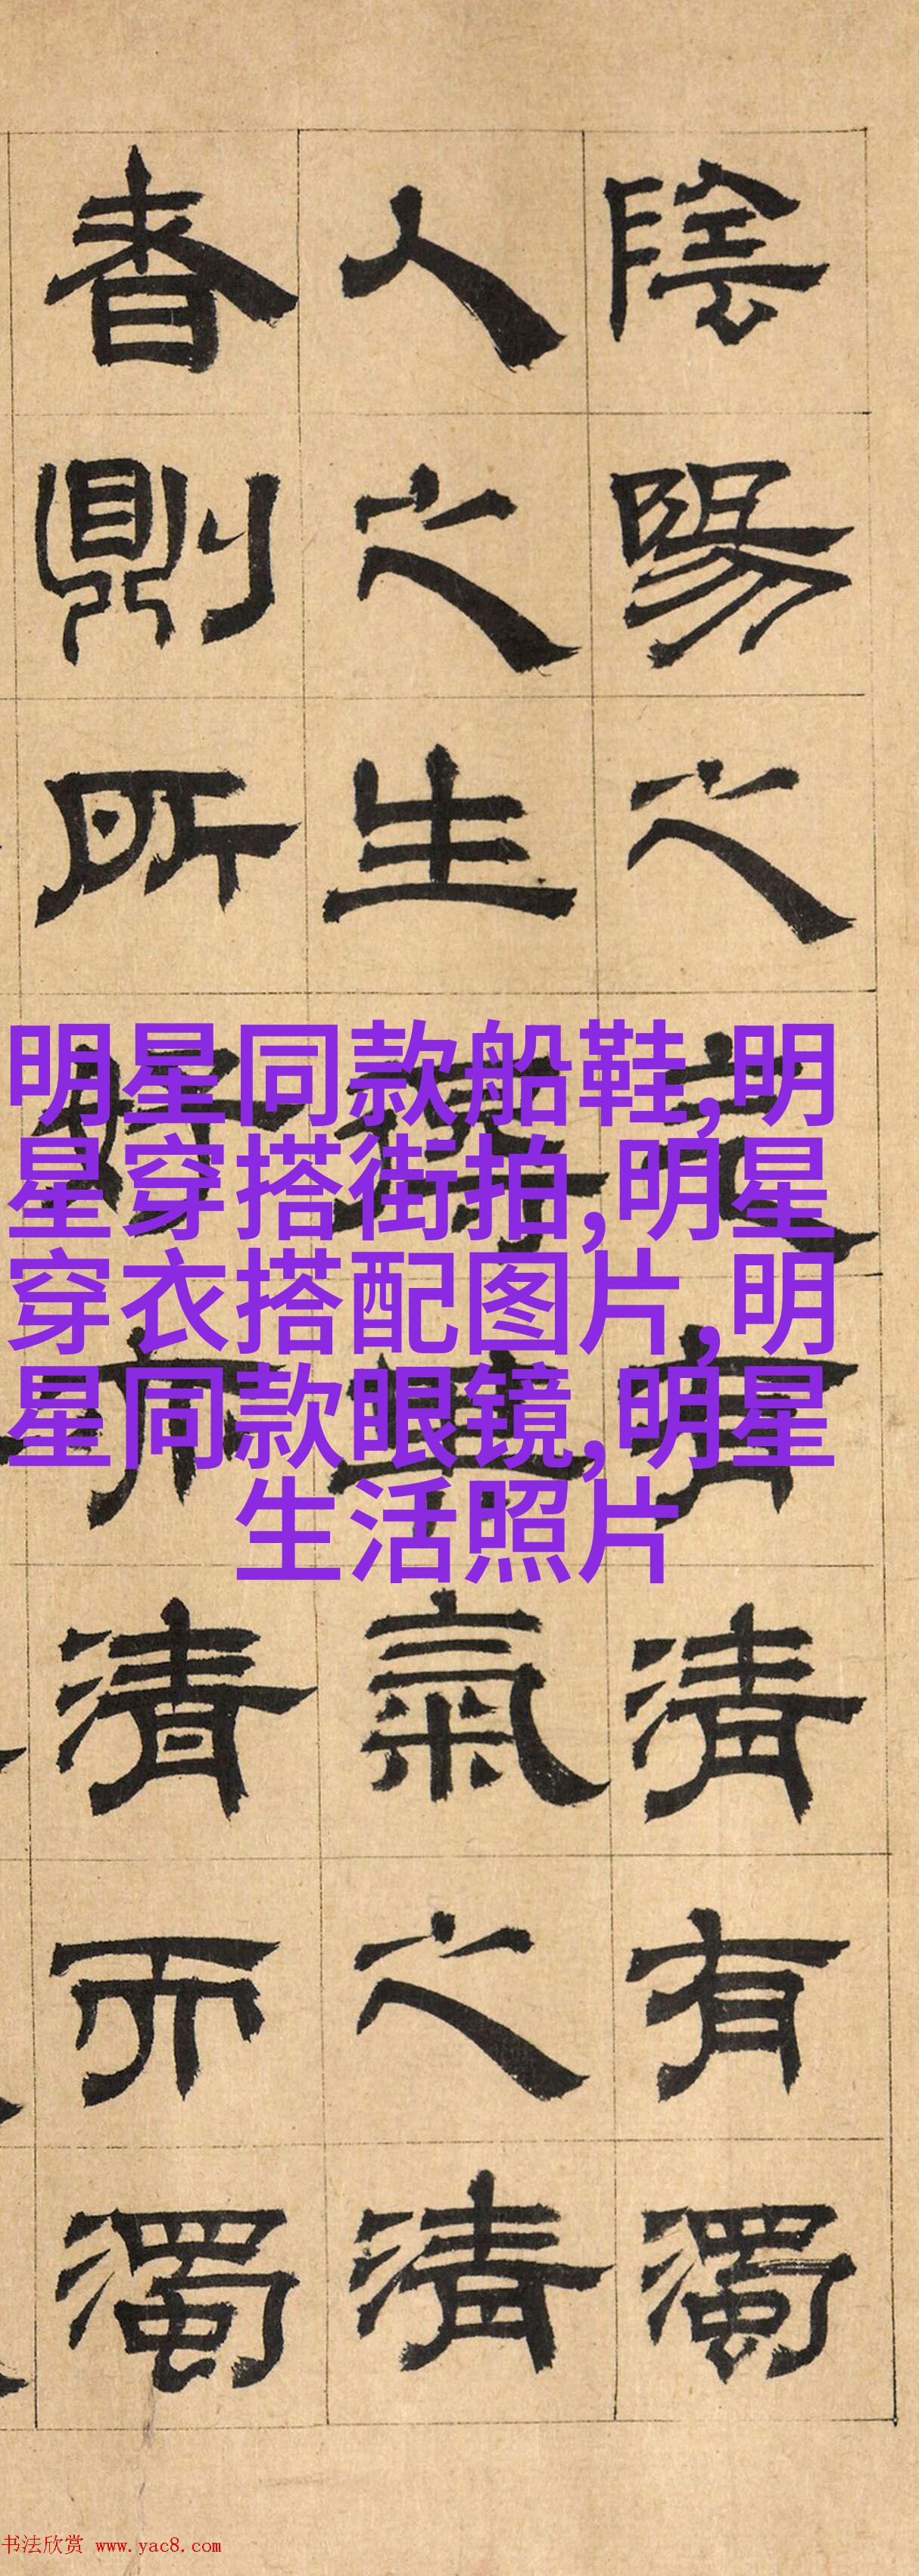 陰陽之氣有清有濁
人之生氣之清
者則所好亦清而濁
明星同款船鞋,明
星穿搭街拍,明星
穿衣搭配图片,明
星同款眼镜,明星
生活照片
书法欣赏 www.yac8.com